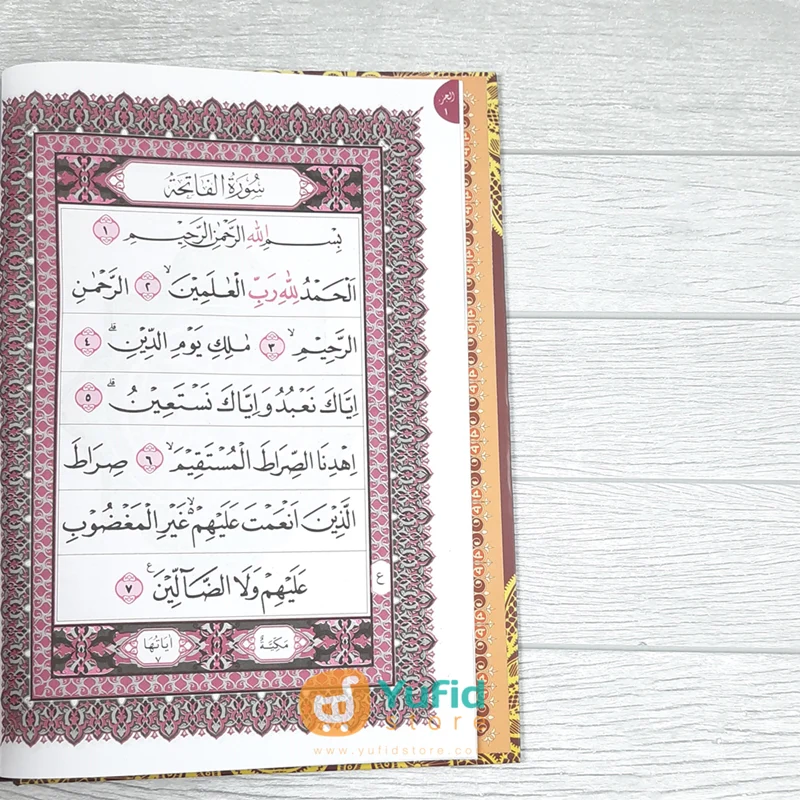 الجزء
١
سُوْرَةُ الْفَاتِحَةِ
بِسْمِ اللّٰهِ الرَّحْمٰنِ الرَّحِيْمِ ١
اَلْحَمْدُ لِلّٰهِ رَبِّ الْعٰلَمِيْنَۙ ٢ الرَّحْمٰنِ
الرَّحِيْمِۙ ٣ مٰلِكِ يَوْمِ الدِّيْنِۗ ٤
اِيَّاكَ نَعْبُدُ وَاِيَّاكَ نَسْتَعِيْنُۗ ٥
اِهْدِنَا الصِّرَاطَ الْمُسْتَقِيْمَۙ ٦ صِرَاطَ
الَّذِيْنَ اَنْعَمْتَ عَلَيْهِمْ ەۙ غَيْرِ الْمَغْضُوْبِ
عَلَيْهِمْ وَلَا الضَّاۤلِّيْنَ ࣖ ٧
ع
مَكِّيَّةٌ
اٰيَاتُهَا
٧
Yufid
store
www.yufidstore.com